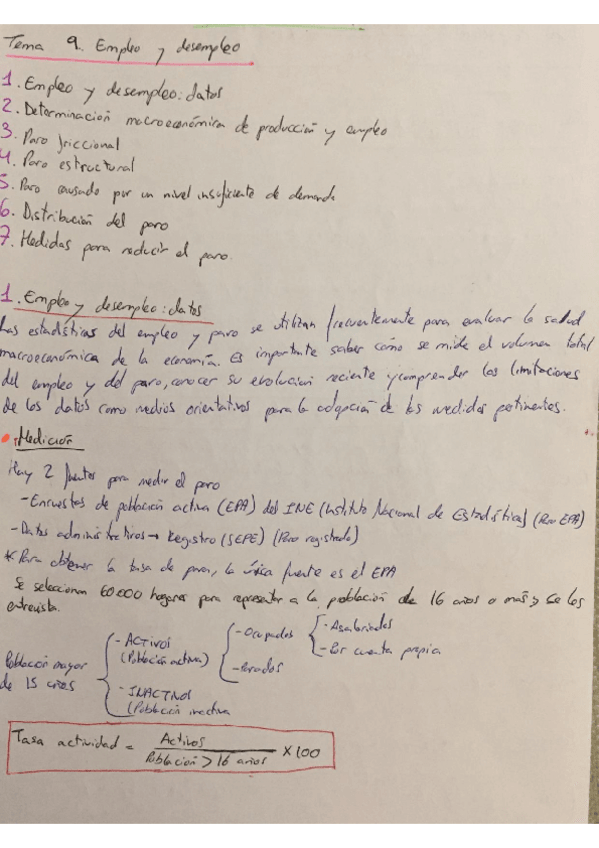 Tema 9. Empleo y desempleo
1. Empleo y desempleo: datos
2. Determinación macroeconómica de producción y empleo
3. Paro friccional
4. Paro estructural
5. Paro causado por un nivel insuficiente de demanda
6. Distribución del paro
7. Medidas para reducir el paro.
1. Empleo y desempleo: datos
Las estadísticas del empleo y paro se utilizan frecuentemente para evaluar la salud
macroeconómica de la economía. Es importante saber cómo se mide el volumen total
del empleo y del paro, conocer su evolucion reciente y comprender las limitaciones
de los datos como medios orientativos para la adopción de las medidas pertinentes.
• Medición
Hay 2 fuentes para medir el paro
- Encuestas de población activa (EPA) del INE (Instituto Nacional de Estadísticas) (Paro EPA)
- Datos administrativos → Registro (SEPE) (Paro registrado)
* Para obtener la tasa de paro, la única fuente es el EPA
Se seleccionan 60.000 hogares para representar a la población de 16 años o más y se les
entrevista.
Población mayor de 15 años
- ACTIVOS (Población activa)
- Ocupados
- Asalariados
- Por cuenta propia
- Parados
- INACTIVOS (Población inactiva
Tasa actividad = Activos / Población > 16 años × 100